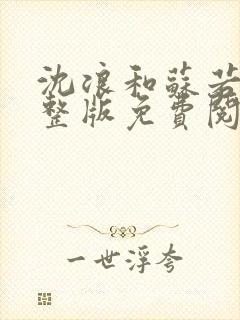 沈浪和蘇若
整版免費閱
一世浮夸